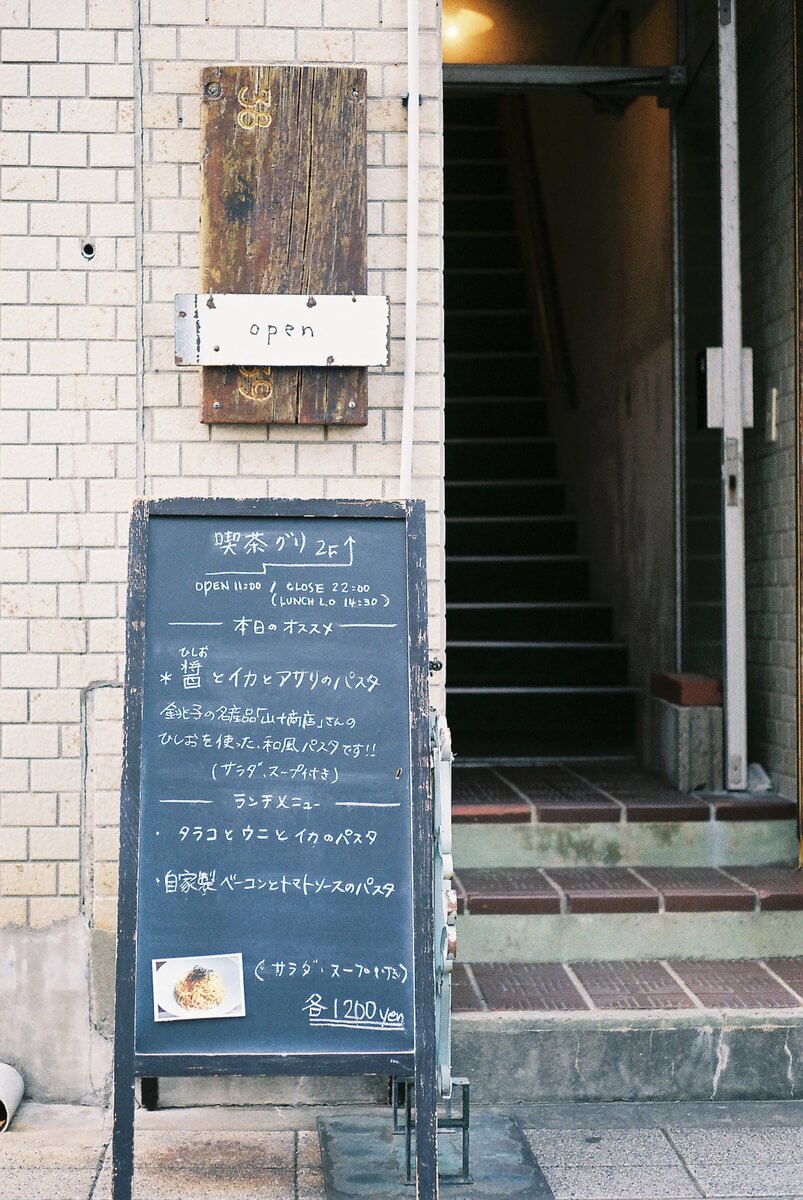 38
open
喫茶グリ 2F↑
OPEN 11:00 / CLOSE 22:00
(LUNCH L.O 14:30)
本日のオススメ
ひしお
* 醤とイカとアサリのパスタ
銚子の名産品「山十商店」さんの
ひしおを使った、和風パスタです!!
(サラダ、スープ付き)
ランチメニュー
・タラコとウニとイカのパスタ
・自家製ベーコンとトマトソースのパスタ
(サラダ、スープ付き)
各1200yen